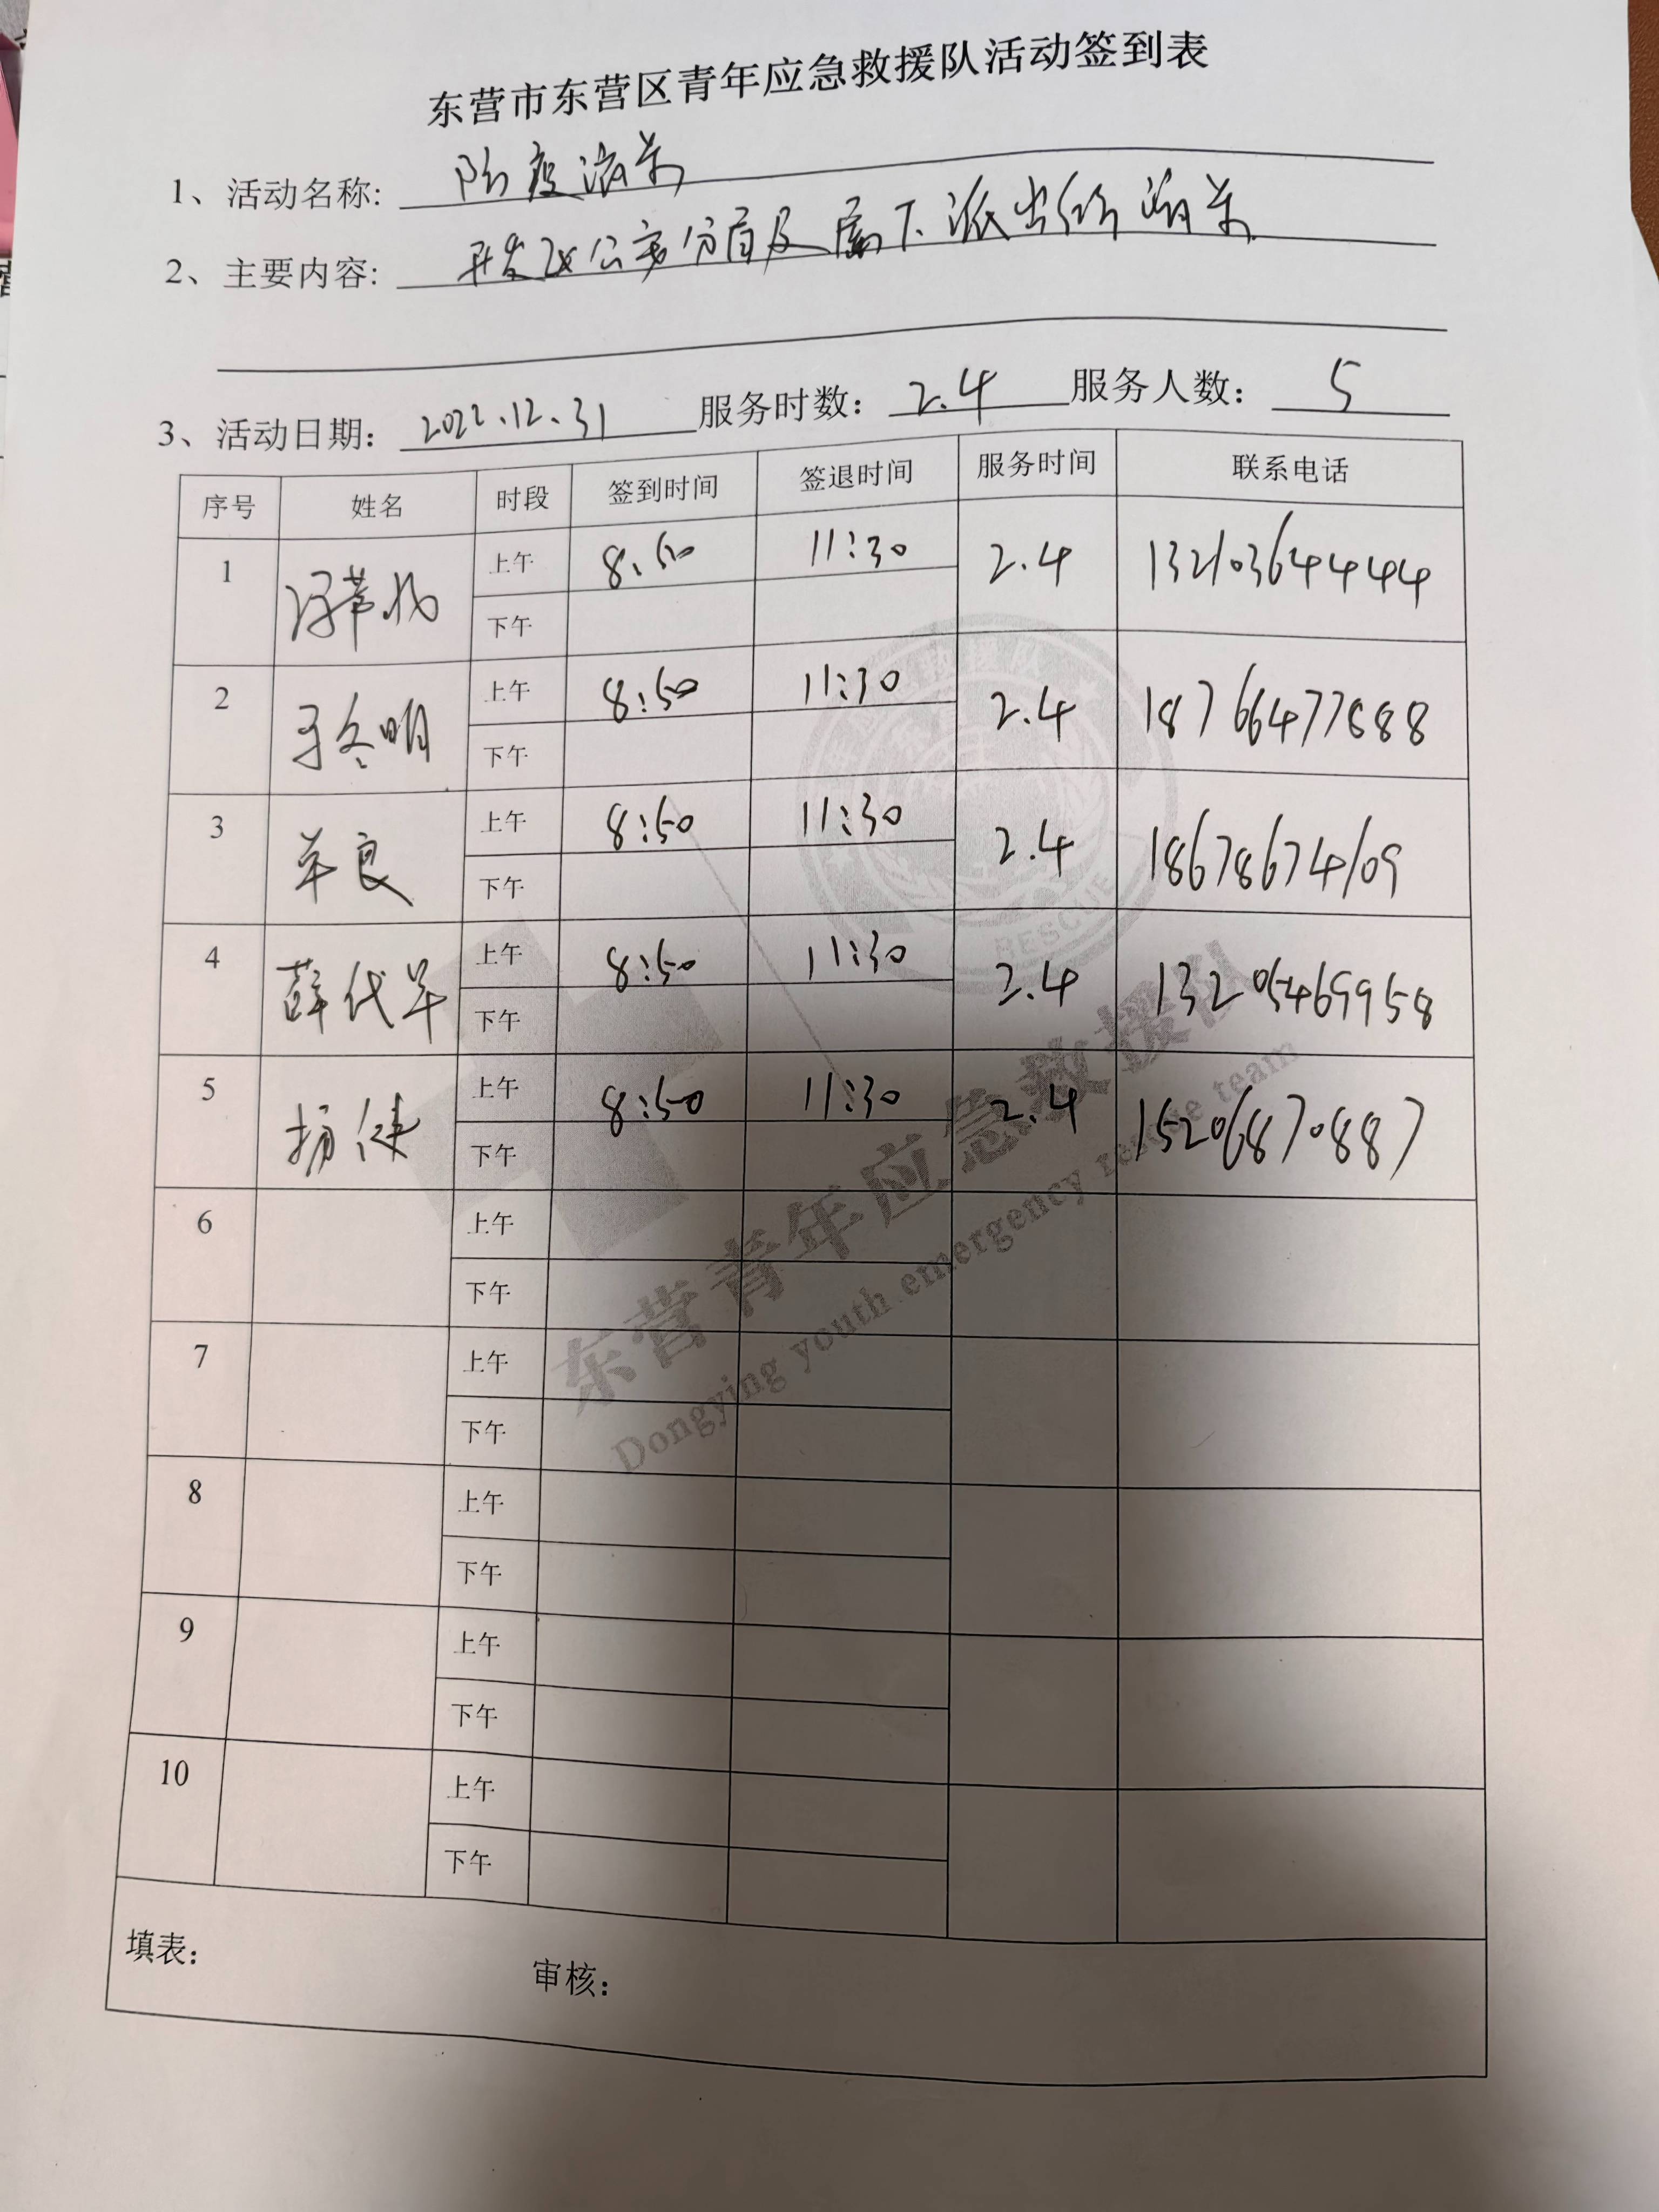 东营市东营区青年应急救援队活动签到表
1、活动名称: 防疫消杀
2、主要内容: 开发区公安分局及属下派出所消杀
3、活动日期: 2022.12.31 服务时数: 2.4 服务人数: 5
序号 姓名 时段 签到时间 签退时间 服务时间 联系电话
1 上午 8:50 11:30 2.4 13210364444
下午
2 于冬明 上午 8:50 11:30 2.4 18766477888
下午
3 牟良 上午 8:50 11:30 2.4 18678674109
下午
4 薛代军 上午 8:50 11:30 2.4 13205469958
下午
5 杨健 上午 8:50 11:30 2.4 15206870887
下午
6 上午
下午
7 上午
下午
8 上午
下午
9 上午
下午
10 上午
下午
填表: 审核:
东营青年应急救援队
Dongying youth emergency rescue team
RESCUE